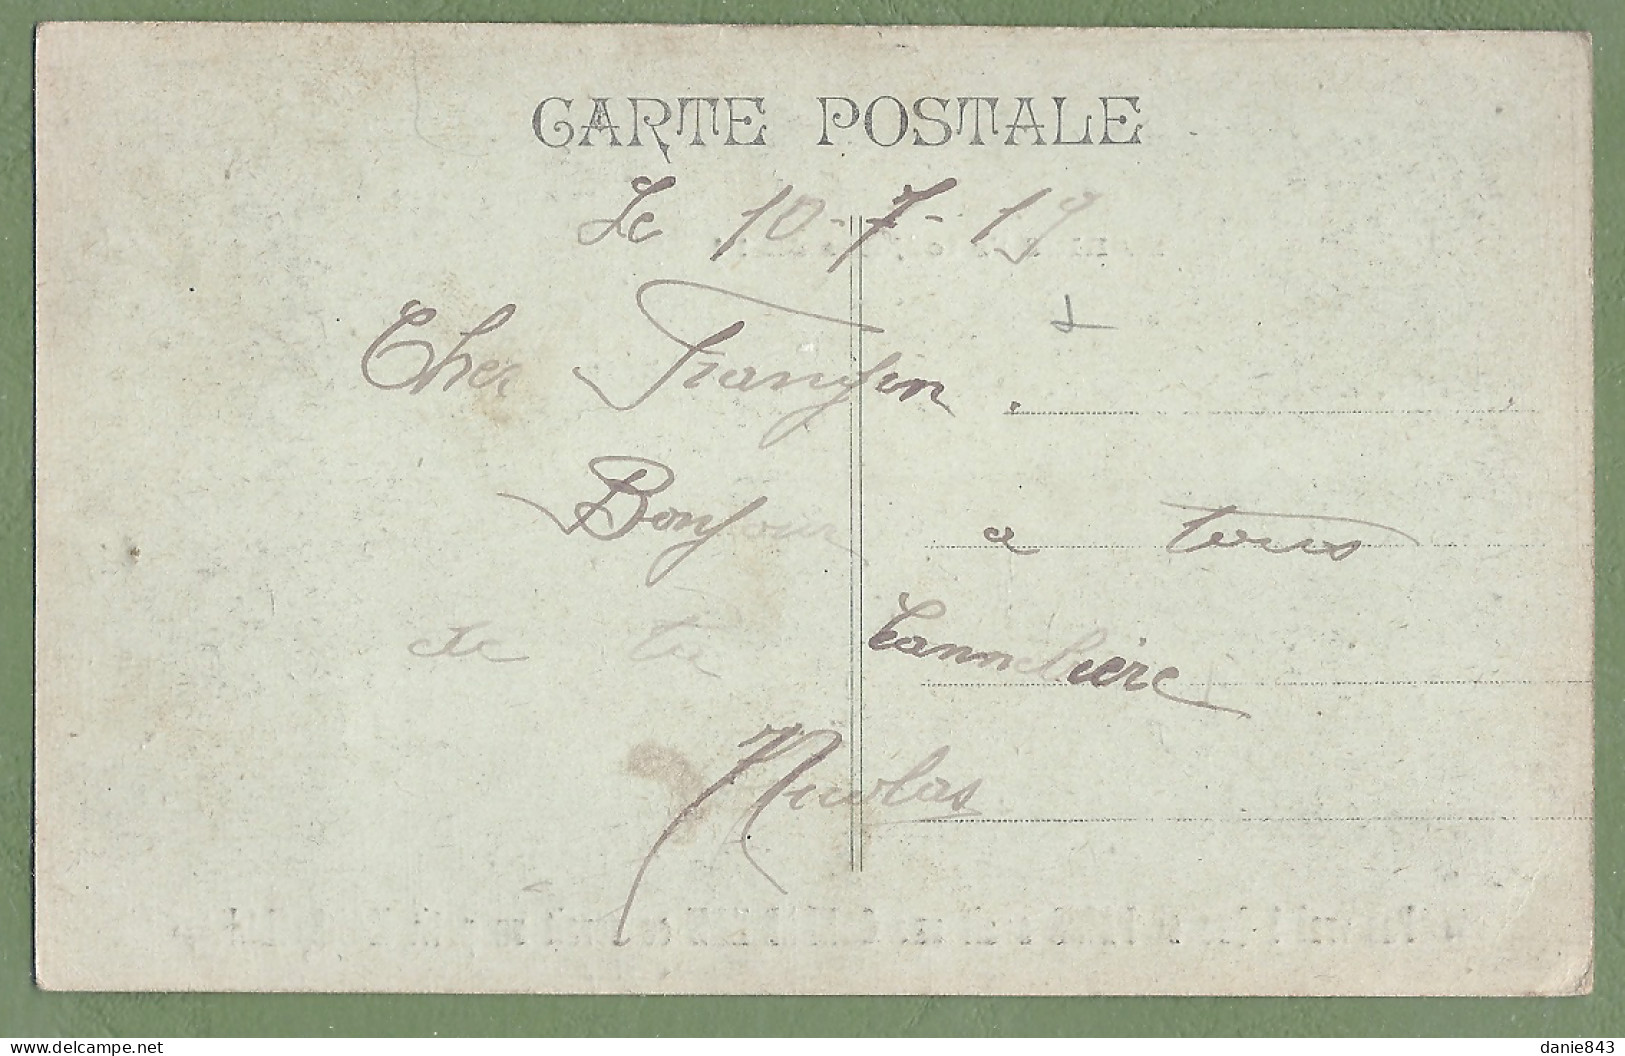 CARTE POSTALE
Le 10-7-19
Cher
Bonjour a tous
de tu Cannebière
Nicolas
delcampe.net
danie843